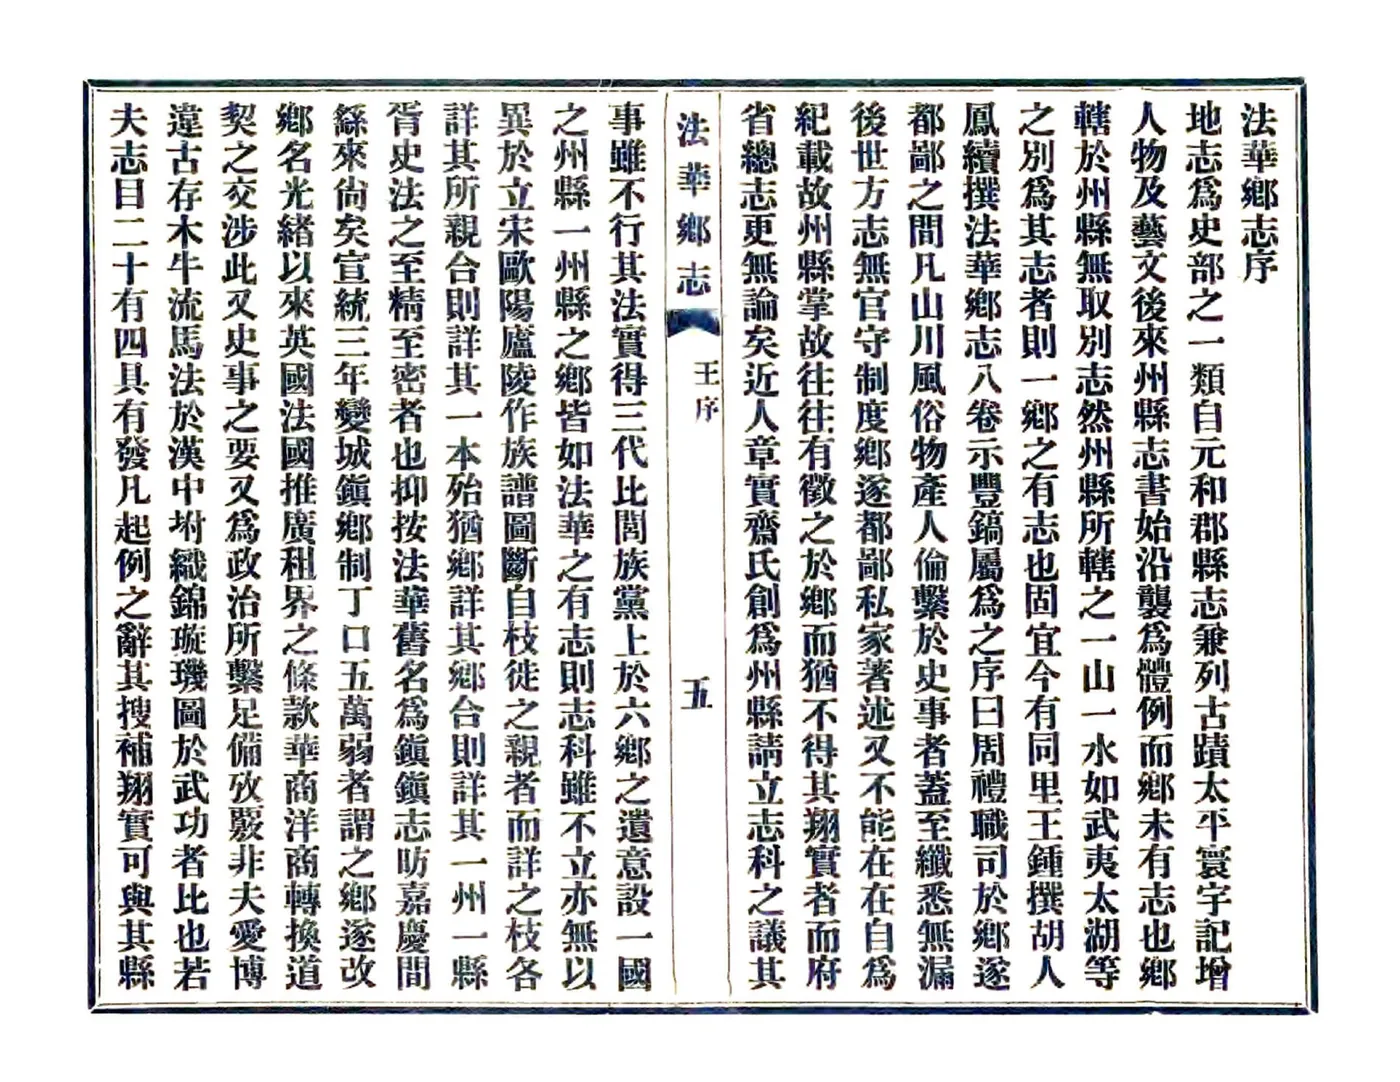 法華鄉志序
地志爲史部之一類自元和郡縣志兼列古蹟太平寰宇記增
人物及藝文後來州縣志書始沿襲爲體例而鄉未有志也鄉
轄於州縣無取別志然州縣所轄之一山一水如武夷太湖等
之別爲其志者則一鄉之有志也固宜今有同里王鍾撰胡人
鳳續撰法華鄉志八卷示豐鎬屬爲之序曰周禮職司於鄉遂
都鄙之間凡山川風俗物產人倫繫於史事者蓋至纖悉無漏
後世方志無官守制度鄉遂都鄙私家著述又不能在在自爲
紀載故州縣掌故往往有徵之於鄉而猶不得其翔實者而府
省總志更無論矣近人章實齋氏創爲州縣請立志科之議其
法華鄉志
王序
五
事雖不行其法實得三代比閭族黨上於六鄉之遺意設一國
之州縣一州縣之鄉皆如法華之有志則志科雖不立亦無以
異於立宋歐陽廬陵作族譜圖斷自枝徙之親者而詳之枝各
詳其所親合則詳其一本殆猶鄉詳其鄉合則詳其一州一縣
胥史法之至精至密者也抑按法華舊名爲鎭鎭志昉嘉慶間
繇來尙矣宣統三年變城鎭鄉制丁口五萬弱者謂之鄉遂改
鄉名光緒以來英國法國推廣租界之條款華商洋商轉換道
契之交涉此又史事之要又爲政治所繫足備攷覈非夫愛博
違古存木牛流馬法於漢中坿織錦璇璣圖於武功者比也若
夫志目二十有四具有發凡起例之辭其搜補翔實可與其縣